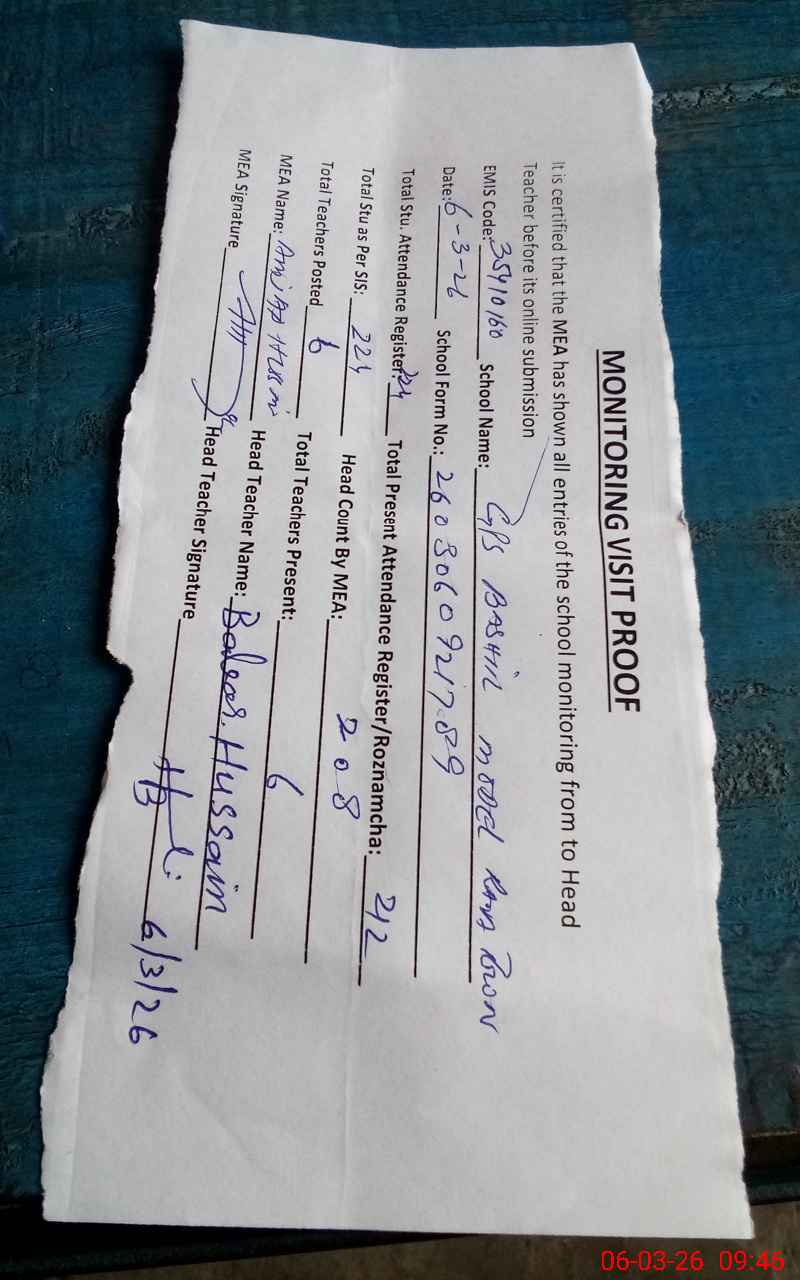 MONITORING VISIT PROOF
It is certified that the MEA has shown all entries of the school monitoring from to Head
Teacher before its online submission
EMIS Code: 35410160 School Name: GPS BASHIR MODEL RANA TOWN
Date: 6-3-26 School Form No.: 26030609217.89
Total Stu. Attendance Register Total Present Attendance Register/Roznamcha: 212
Total Stu as Per SIS: 224 Head Count By MEA: 208
Total Teachers Posted 6 Total Teachers Present: 6
MEA Name: Head Teacher Name: Hussain
MEA Signature Head Teacher Signature 6/3/26
06-03-26 09:46